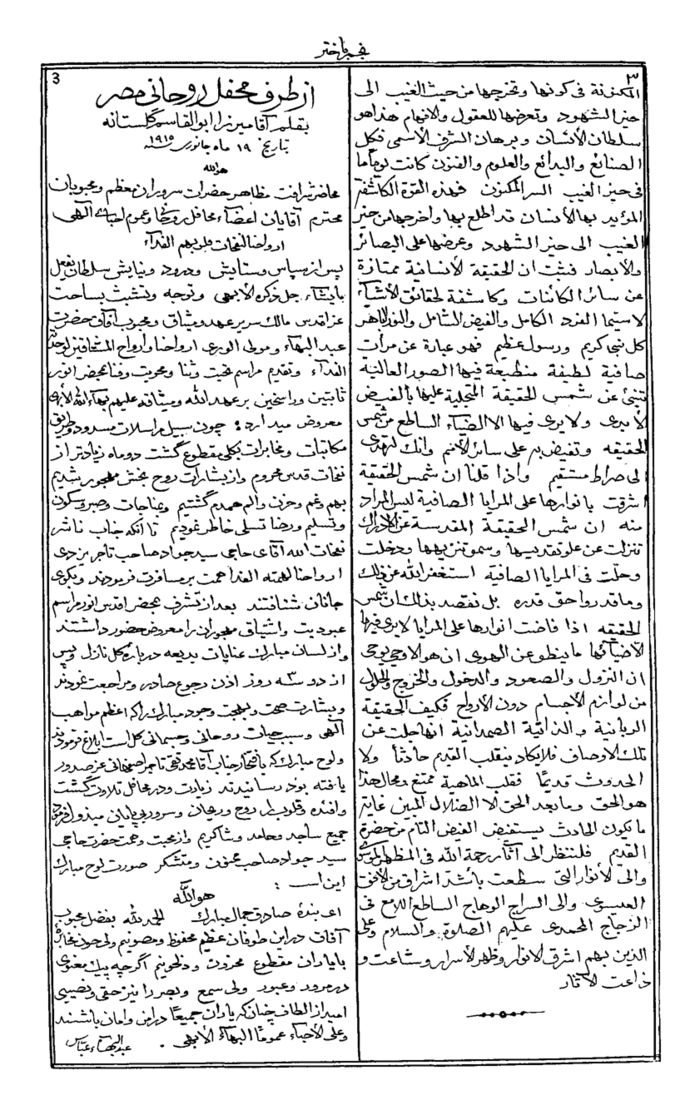 نجم باختر
۳
المكنونة فى كونها وتخرجها من حيث الغيب الى
حيز الشهود وتعرضها للعقول والافهام هذا هو
سلطان الأنسان وبرهان الشرف الأسمى فكل
الصنائع والبدائع والعلوم والفنون كانت يوماً ما
فى حيز الغيب السر المكنون فهذه القوة الكاشفة
المؤيد بها الأنسان قد اطلع بها واخرجها من حيز
الغيب الى حيز الشهود وعرضها على البصائر
والأبصار فثبت ان الحقيقة الأنسانية ممتازة
عن سائر الكائنات وكاشفة لحقائق الأشياء
لا سيما الفرد الكامل والفيض الشامل والنور الباهر
كل نبى كريم ورسول عظيم فهو عبارة عن مرآت
صافية لطيفة منطبعة فيها الصور العالية
تنبئ عن شمس الحقيقة المتجلية عليها بالفيض
الأبدى ولا يرى فيها الا الضياء الساطع من شمس
الحقيقة وتفيض به على سائر الأمم وانك لتهدى
الى صراط مستقيم واذا قلنا ان شمس الحقيقة
اشرقت بانوارها على المرايا الصافية ليس المراد
منه ان شمس الحقيقة المقدسة عن الأدراك
تنزلت عن علو تقديسها وسمو تنزيهها ودخلت
وحلّت فى المرايا الصافية استغفر الله عن ذلك
وما قدروا حق قدره بل نقصد بذلك ان شمس
الحقيقة اذا فاضت انوارها على المرايا لا يرى فيها
الأضيائها ما ينطق عن الهوى ان هو الا وحى يوحى
ان النزول والصعود والدخول والخروج والحلول
من لوازم الأجسام دون الأرواح فكيف الحقيقة
الربانية والذاتية الصمدانية انها جلت عن
تلك الأوصاف فلا يكاد ينقلب القديم حادثاً ولا
الحدوث قديماً فقلب الماهية ممتنع ومحال هذا
هو الحق وما بعد الحق الا الضلال المبين غاية
ما يكون الحادث يستفيض الفيض التام من حضرة
القديم فلننظر الى آثار رحمة الله فى المظهر الموسوى
والى الأنوار التى سطعت باشد اشراق من الأفق
العيسوى والى السراج الوهاج الساطع اللامع فى
الزجاج المحمدى عليهم الصلوة والسلام وعلى
الذين بهم اشرق الأنوار وظهر الأسرار وشاعت و
ذاعت الآثار
3
از طرف محفل روحانى مصر
بقلم آقا ميرزا ابوالقاسم گلستانه
بتاريخ ۱۹ ماه جانورى سنه ۱۹۱۵
هوالله
محاضر شرافت مظاهر حضرات سروران معظم و محبوبان
محترم آقايان اعضاء محافل روحانى وعموم احباى الهى
ارواحنا لنفحات قلوبهم الفداء
پس از سپاس وستايش ودرود ونيايش سلطان يفعل
مايشاء جل ذكره الأبهى وتوجه وتشبث بساحت
عز اقدس مالك سرير عهد وميثاق ومحبوب آفاق حضرت
عبد البهاء ومولى الورى ارواحنا وارواح المشتاقين لوحدته
الفداء وتقديم مراسم تحيت وثنا ومحويت وفنا بمحضر انور
ثابتين وراسخين بر عهد الله وميثاقه عليهم بهاء الله الأبهى
معروض ميدارد: چون سبيل مراسلات مسدود وطريق
مكاتبات ومخابرات بكلى مقطوع گشت دو ماه زيادتر از
نفحات قدس محروم واز بشارات روح بخش مهجور شديم
بهم وغم وحزن والم همدم گشتيم وبمناجات وصبر وسكون
وتسليم ورضا تسلى خاطر نموديم تا آنكه جناب ناشر
نفحات الله آقاى حاجى سيد جواد صاحب تاجر يزدى
ارواحنا لهمته الفدا همت بر مسافرت فرمودند وبكوى
جانان شتافتند بعد از تشرف بمحضر اقدس انور مراسم
عبوديت واشتياق مهجوران را معروض حضور داشتند
واز لسان مبارك عنايات بديعه درباره كل نازل وپس
از دو سه روز اذن رجوع صادر ومراجعت نمودند
وبشارت صحت وبهجت وجود مبارك راكه اعظم مواهب
الهى وسبب حيات روحانى وجسمانى كل است ابلاغ فرمودند
ولوح مبارك كه بافتخار جناب آقا محمد تقى تاجر اصفهانى عز صدور
يافته بود رسانيدند زيارت ودر محافل تلاوت گشت
وافئده وقلوب را روح وريحان وسرور بى پايان مبذول فرمود
جميع ساجد وحامد وشاكريم واز محبت وهمت حضرت حاجى
سيد جواد صاحب ممنون ومتشكر صورت لوح مبارك
اين است :
هوالله
اى بنده صادق جمال مبارك الحمد لله بفضل محبوب
آفاق در اين طوفان عظيم محفوظ ومصونيم ولى چون مخابره
با ياران مقطوع محزون ودلخونيم اگرچه پيك معنوى
در مرور وعبور ولى سمع وبصر را نيز حقى ونصيبى
اميد از الطاف چنان كه ياران جميعاً در امن وامان باشند
وعلى الأحباء عموماً البهاء الأبهى .
عبدالبهاء عباس